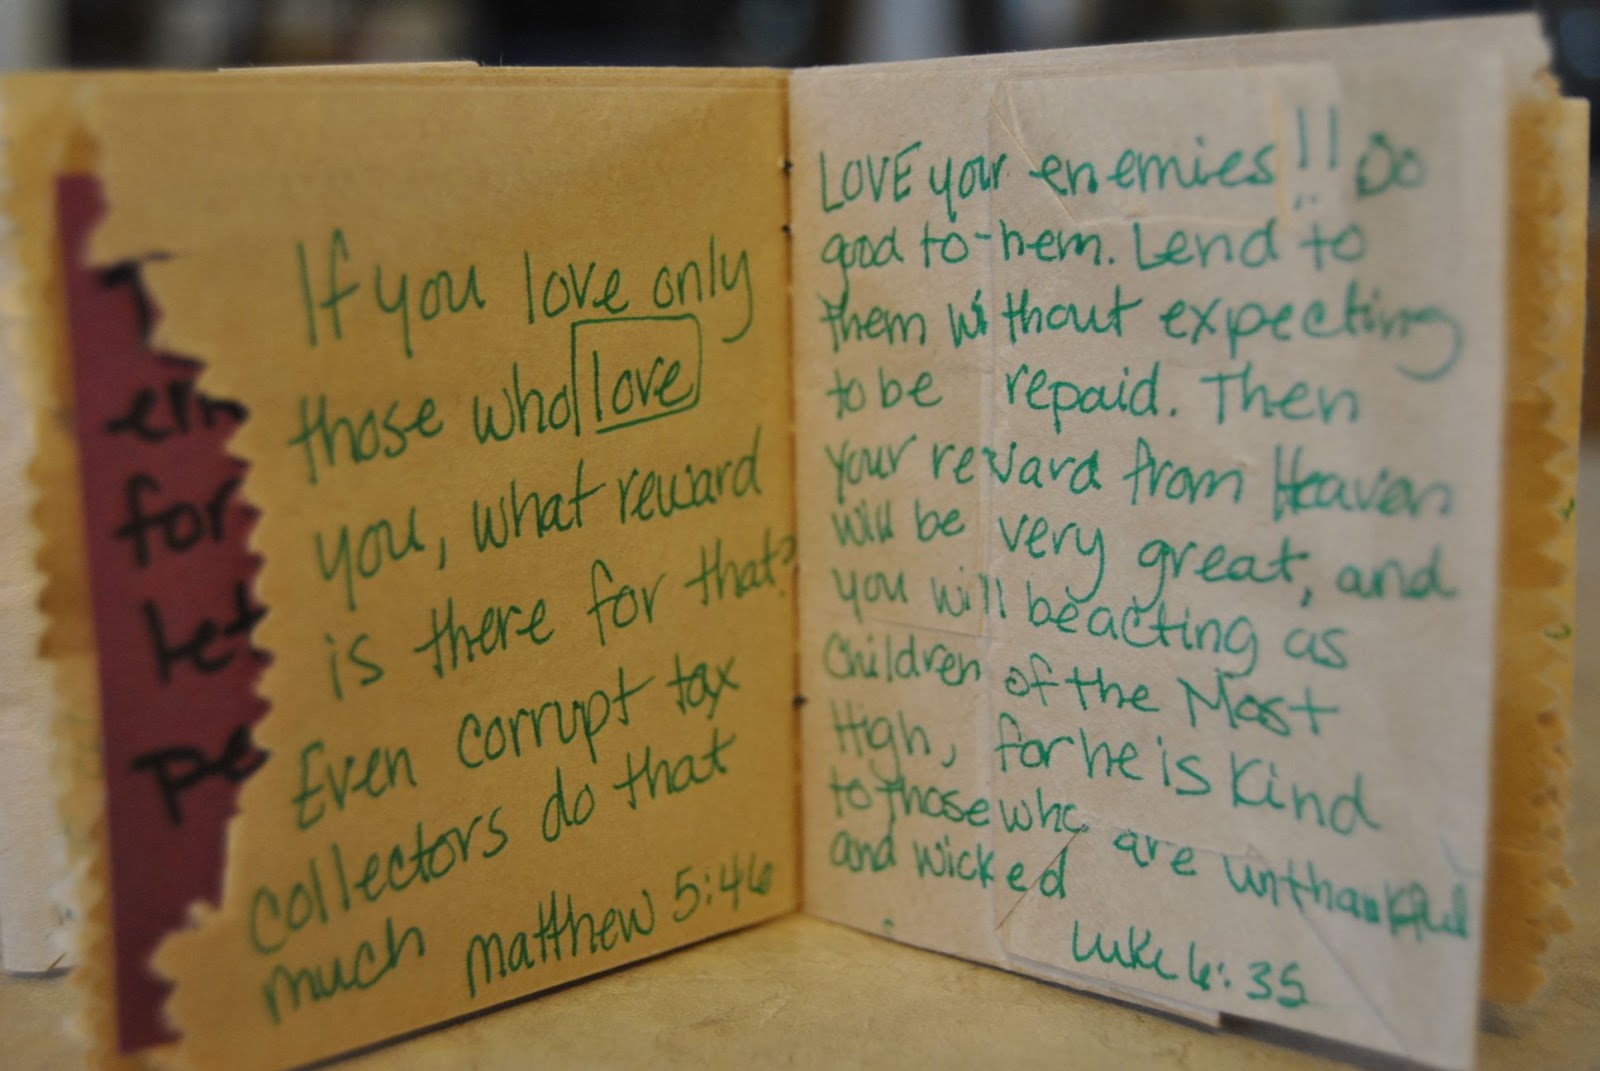 T
em
for
let
pe
If you love only
those who love
you, what reward
is there for that?
Even corrupt tax
collectors do that
much Matthew 5:46
LOVE your enemies!! Do
good to them. Lend to
them without expecting
to be repaid. Then
your reward from Heaven
will be very great, and
you will be acting as
Children of the Most
High, for he is Kind
to those who are unthankful
and wicked
Luke 6:35